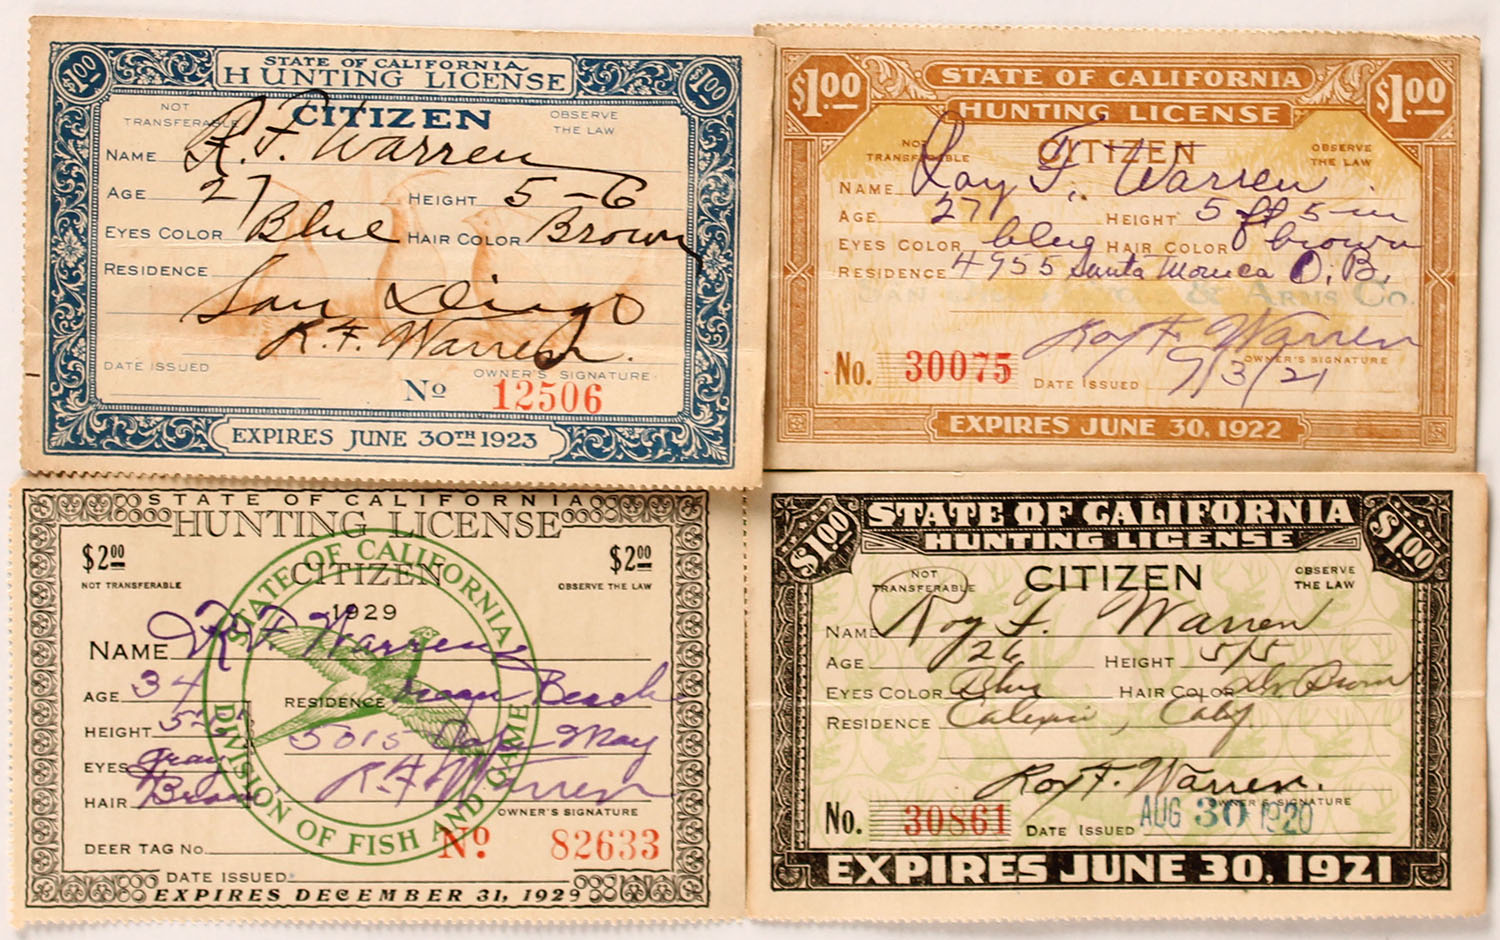 $1.00 STATE OF CALIFORNIA $1.00
HUNTING LICENSE
NOT TRANSFERABLE CITIZEN OBSERVE THE LAW
NAME R. F. Warren
AGE 27 HEIGHT 5-6
EYES COLOR Blue HAIR COLOR Brown
RESIDENCE
San Diego
R. F. Warren.
DATE ISSUED OWNER'S SIGNATURE
No 12506
EXPIRES JUNE 30TH 1923
$1.00 STATE OF CALIFORNIA $1.00
HUNTING LICENSE
NOT TRANSFERABLE CITIZEN OBSERVE THE LAW
NAME Roy F. Warren
AGE 27 HEIGHT 5 ft 5 in
EYES COLOR blue HAIR COLOR brown
RESIDENCE 4955 Santa Monica O. B.
SAN & ARMS CO.
Roy F. Warren
OWNER'S SIGNATURE
No. 30075 DATE ISSUED 7/3/21
EXPIRES JUNE 30, 1922
STATE OF CALIFORNIA
HUNTING LICENSE
$2.00 CITIZEN $2.00
NOT TRANSFERABLE OBSERVE THE LAW
1929
NAME R F Warren
AGE 34 RESIDENCE Beach
HEIGHT 5015 Cape May
EYES Gray
HAIR Brown R. F. Warren
OWNER'S SIGNATURE
DEER TAG No. No. 82633
DATE ISSUED
EXPIRES DECEMBER 31, 1929
STATE OF CALIFORNIA
DIVISION OF FISH AND GAME
$1.00 STATE OF CALIFORNIA $1.00
HUNTING LICENSE
NOT TRANSFERABLE CITIZEN OBSERVE THE LAW
NAME Roy F. Warren
AGE 26 HEIGHT 5/5
EYES COLOR Blue HAIR COLOR Dr Brown
RESIDENCE Calexico, Calif
Roy F. Warren.
OWNER'S SIGNATURE
No. 30861 DATE ISSUED AUG 30 1920
EXPIRES JUNE 30, 1921